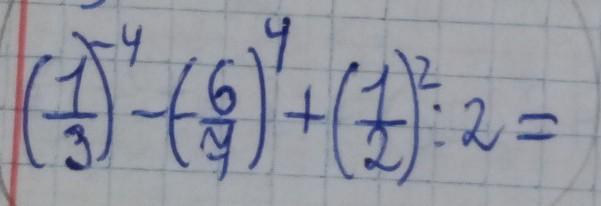 (1/3)^-4 - (-6/7)^4 + (1/2)^2 : 2 =